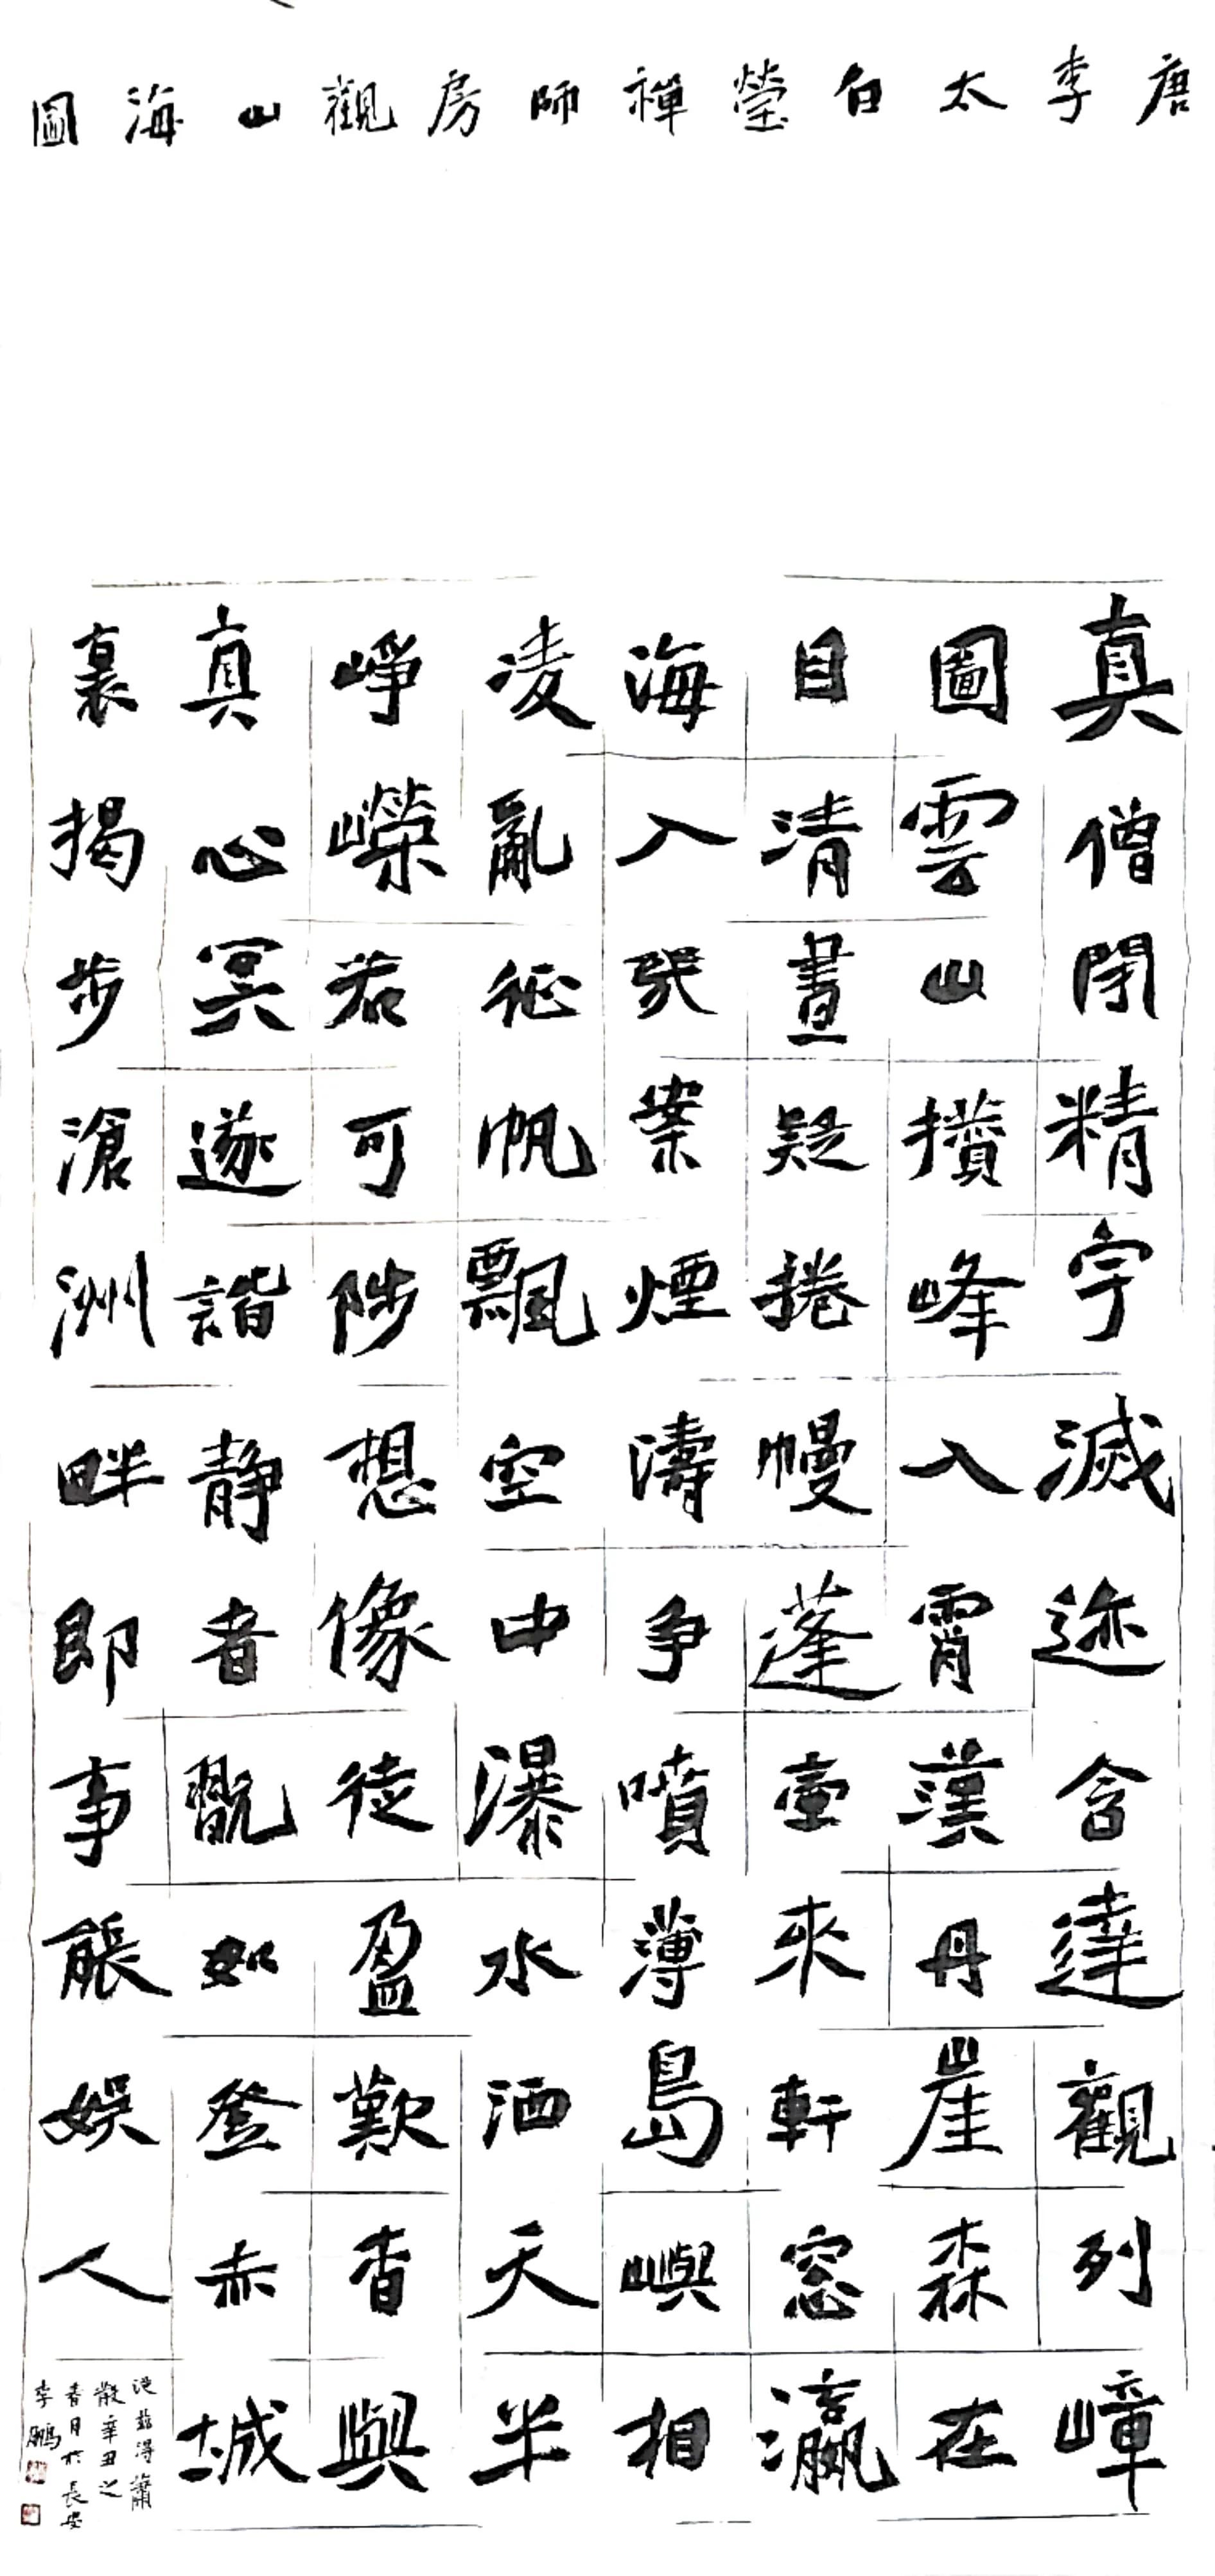 唐李太白瑩禪師房觀山海圖
真僧閉精宇滅迹含達觀列嶂
圖雲山攢峰入霄漢丹崖森在
目清晝疑捲幔蓬壺來軒窓瀛
海入張案煙濤爭噴薄島嶼相
凌亂征帆飄空中瀑水洒天半
崢嶸若可陟想像徒盈歎杳與
真心冥遂諧靜者翫如登赤城
裏揭步滄洲畔即事能娛人
從茲得蕭
散辛丑之
春月於長安
李鵬